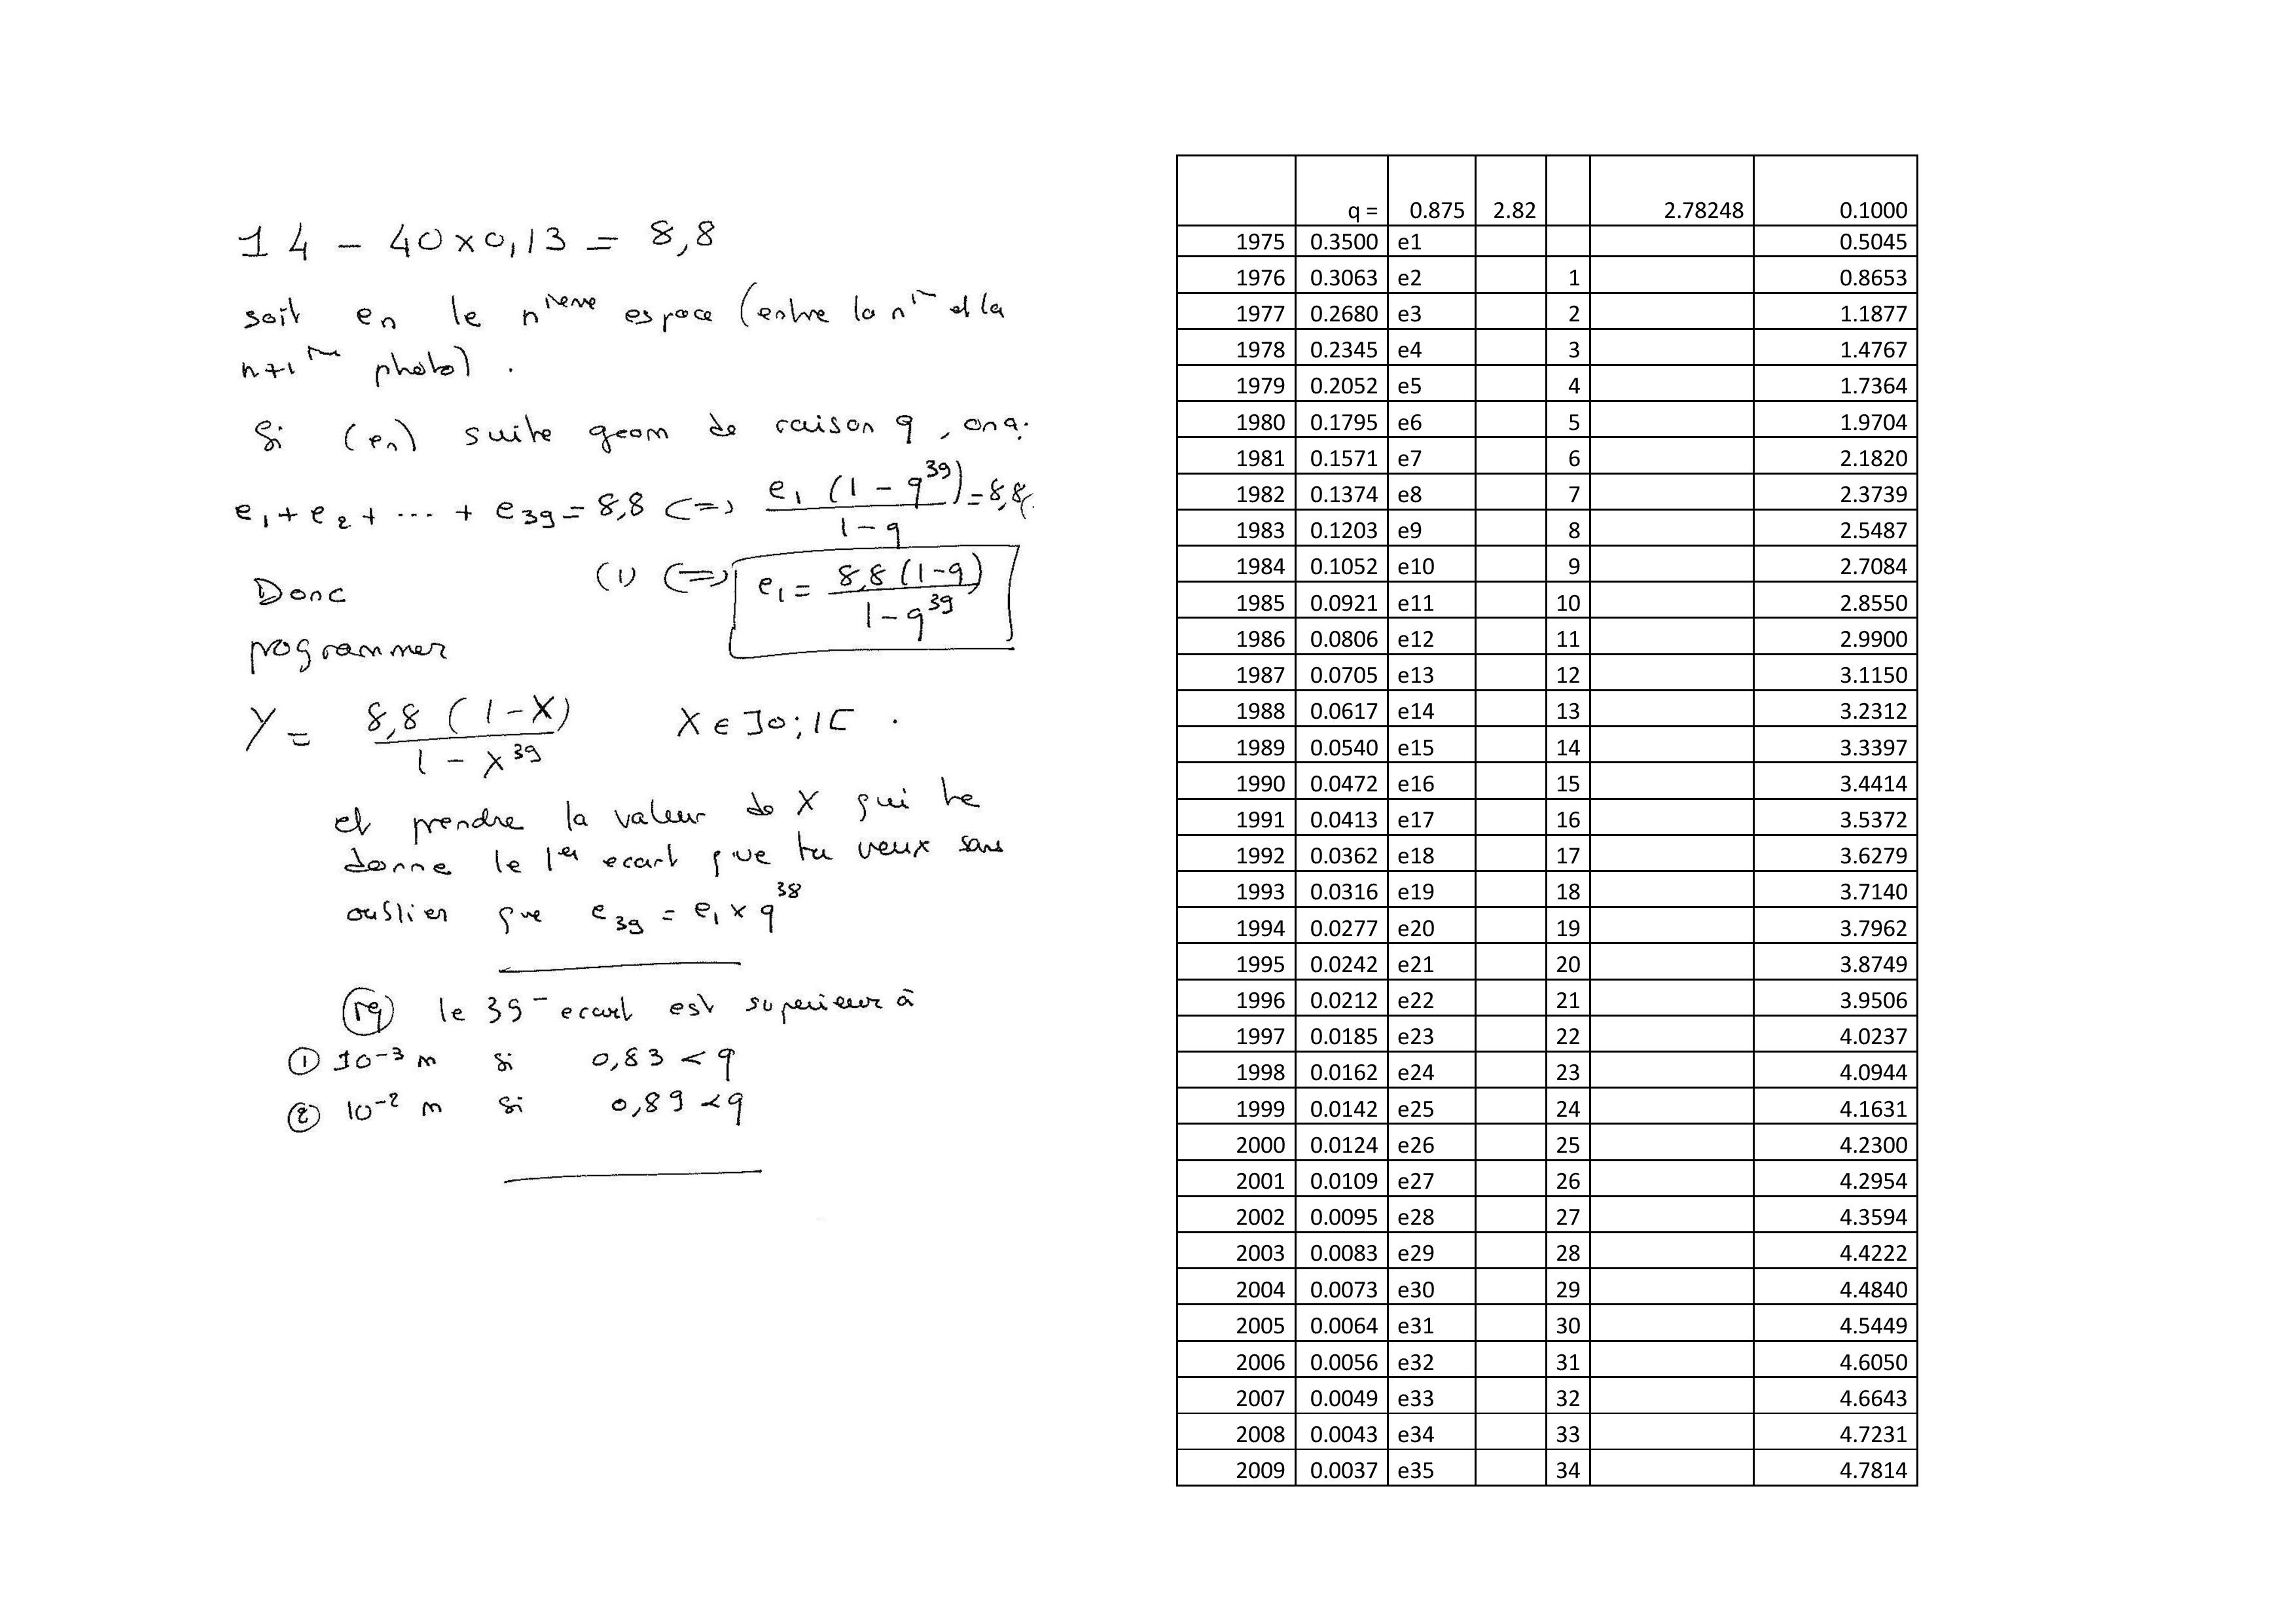 14 - 40x0,13 = 8,8
soit en le nieme espace (entre la nie et la
n+1ie photo) .
Si (en) suite geom de raison q , on a:
e1+e2+ ... + e39=8,8 <=> e1 (1-q^39)/(1-q) =8,8
Donc (1) <=> e1 = 8,8(1-q)/(1-q^39)
programmer
Y = 8,8 (1-X)/(1-X^39) X ∈ ]0;1[ .
et prendre la valeur de X qui te
donne le 1er ecart que tu veux sans
oublier que e39 = e1 x q^38
rq le 39- ecart est superieur à
① 10^-3 m si 0,83 < q
② 10^-2 m si 0,89 < q
q = 0.875 2.82 2.78248 0.1000
1975 0.3500 e1 0.5045
1976 0.3063 e2 1 0.8653
1977 0.2680 e3 2 1.1877
1978 0.2345 e4 3 1.4767
1979 0.2052 e5 4 1.7364
1980 0.1795 e6 5 1.9704
1981 0.1571 e7 6 2.1820
1982 0.1374 e8 7 2.3739
1983 0.1203 e9 8 2.5487
1984 0.1052 e10 9 2.7084
1985 0.0921 e11 10 2.8550
1986 0.0806 e12 11 2.9900
1987 0.0705 e13 12 3.1150
1988 0.0617 e14 13 3.2312
1989 0.0540 e15 14 3.3397
1990 0.0472 e16 15 3.4414
1991 0.0413 e17 16 3.5372
1992 0.0362 e18 17 3.6279
1993 0.0316 e19 18 3.7140
1994 0.0277 e20 19 3.7962
1995 0.0242 e21 20 3.8749
1996 0.0212 e22 21 3.9506
1997 0.0185 e23 22 4.0237
1998 0.0162 e24 23 4.0944
1999 0.0142 e25 24 4.1631
2000 0.0124 e26 25 4.2300
2001 0.0109 e27 26 4.2954
2002 0.0095 e28 27 4.3594
2003 0.0083 e29 28 4.4222
2004 0.0073 e30 29 4.4840
2005 0.0064 e31 30 4.5449
2006 0.0056 e32 31 4.6050
2007 0.0049 e33 32 4.6643
2008 0.0043 e34 33 4.7231
2009 0.0037 e35 34 4.7814